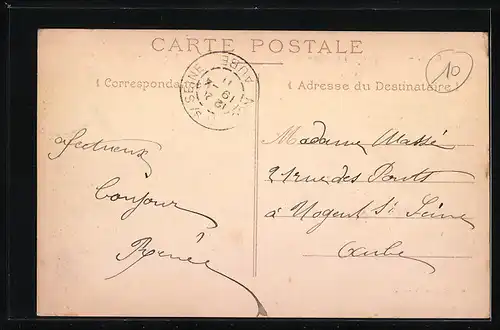 CARTE POSTALE
(Correspondance)
(Adresse du Destinataire)
10
S/SEINE AUBE
Affectueux
bonjour
Renée
Madame Massé
21 rue des Ponts
à Nogent St Seine
Aube